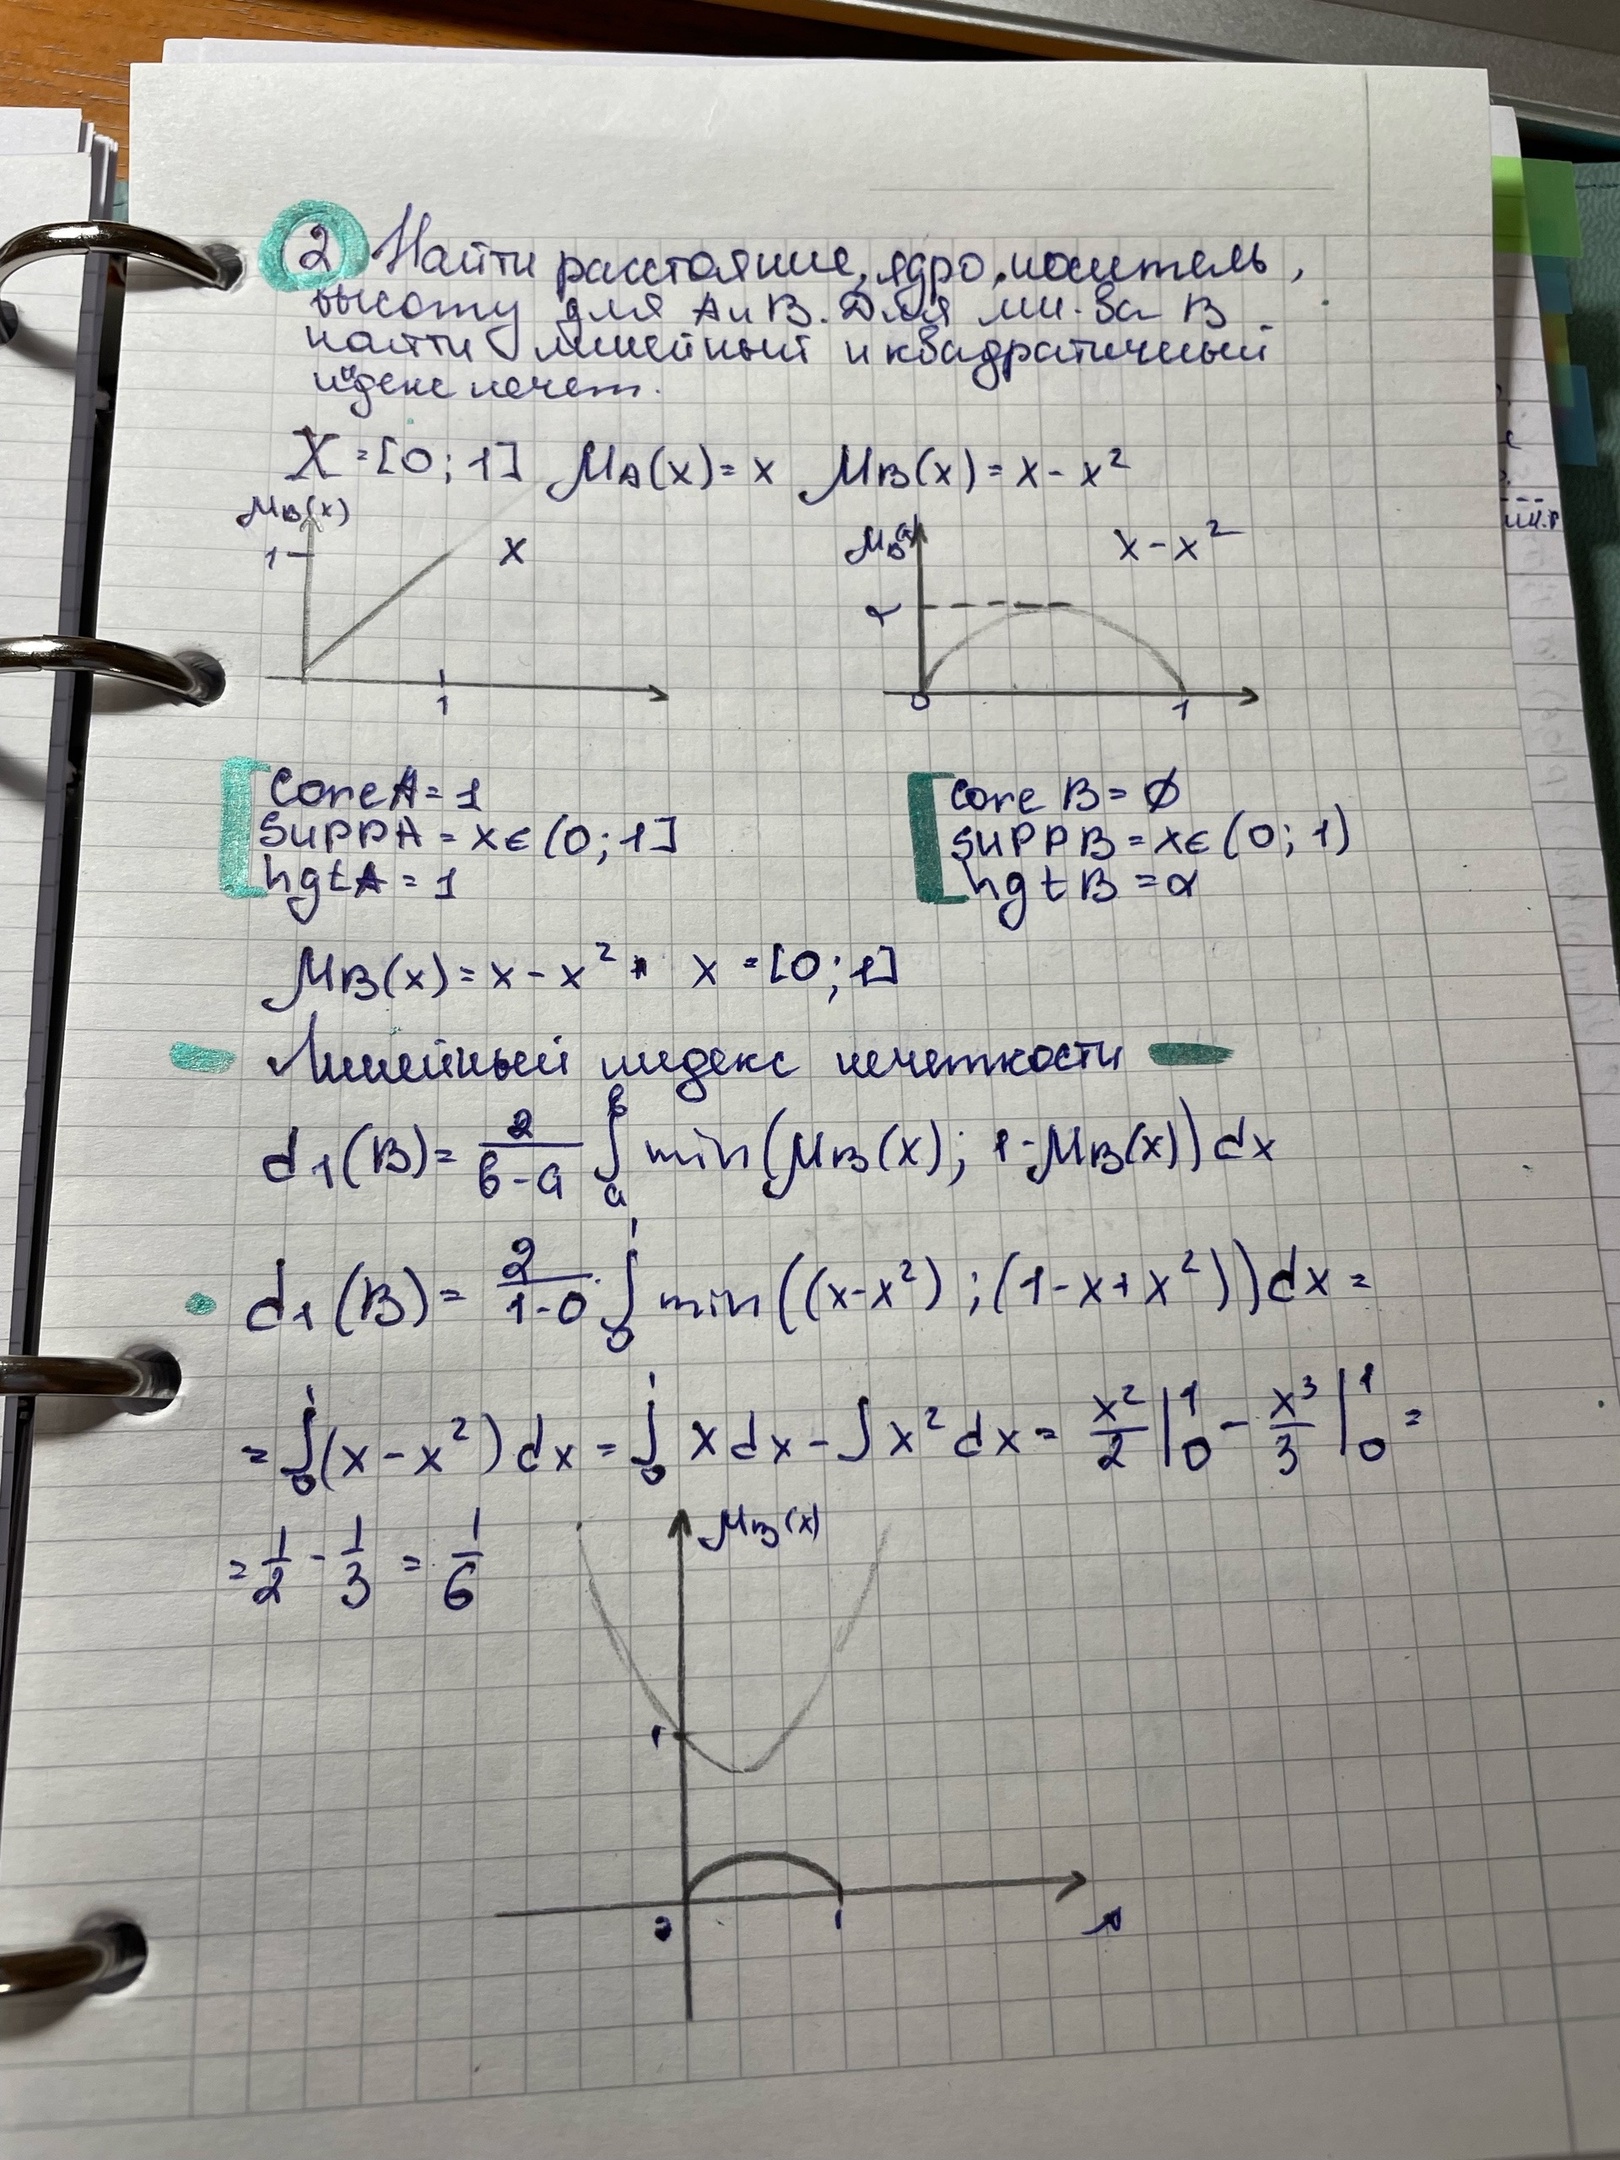 2 Найти расстояние, ядро, носитель,
высоту для A и B. Для мн-ва B
найти линейный и квадратичный
индекс нечет.
X = [0; 1] μA(x) = x μB(x) = x - x²
μB(x)
1
x
1
μB(x)
x - x²
α
0
1
core A = 1
supp A = x ∈ (0; 1]
hgt A = 1
core B = ∅
supp B = x ∈ (0; 1)
hgt B = α
μB(x) = x - x² x = [0; 1]
Линейный индекс нечеткости
d1(B) = 2/(b-a) ∫ₐᵇ min(μB(x); 1-μB(x)) dx
d1(B) = 2/(1-0) · ∫₀¹ min((x-x²); (1-x+x²)) dx =
= ∫₀¹ (x - x²) dx = ∫₀¹ x dx - ∫ x² dx = x²/2 |₀¹ - x³/3 |₀¹ =
= 1/2 - 1/3 = 1/6
μB(x)
1
0
1
x